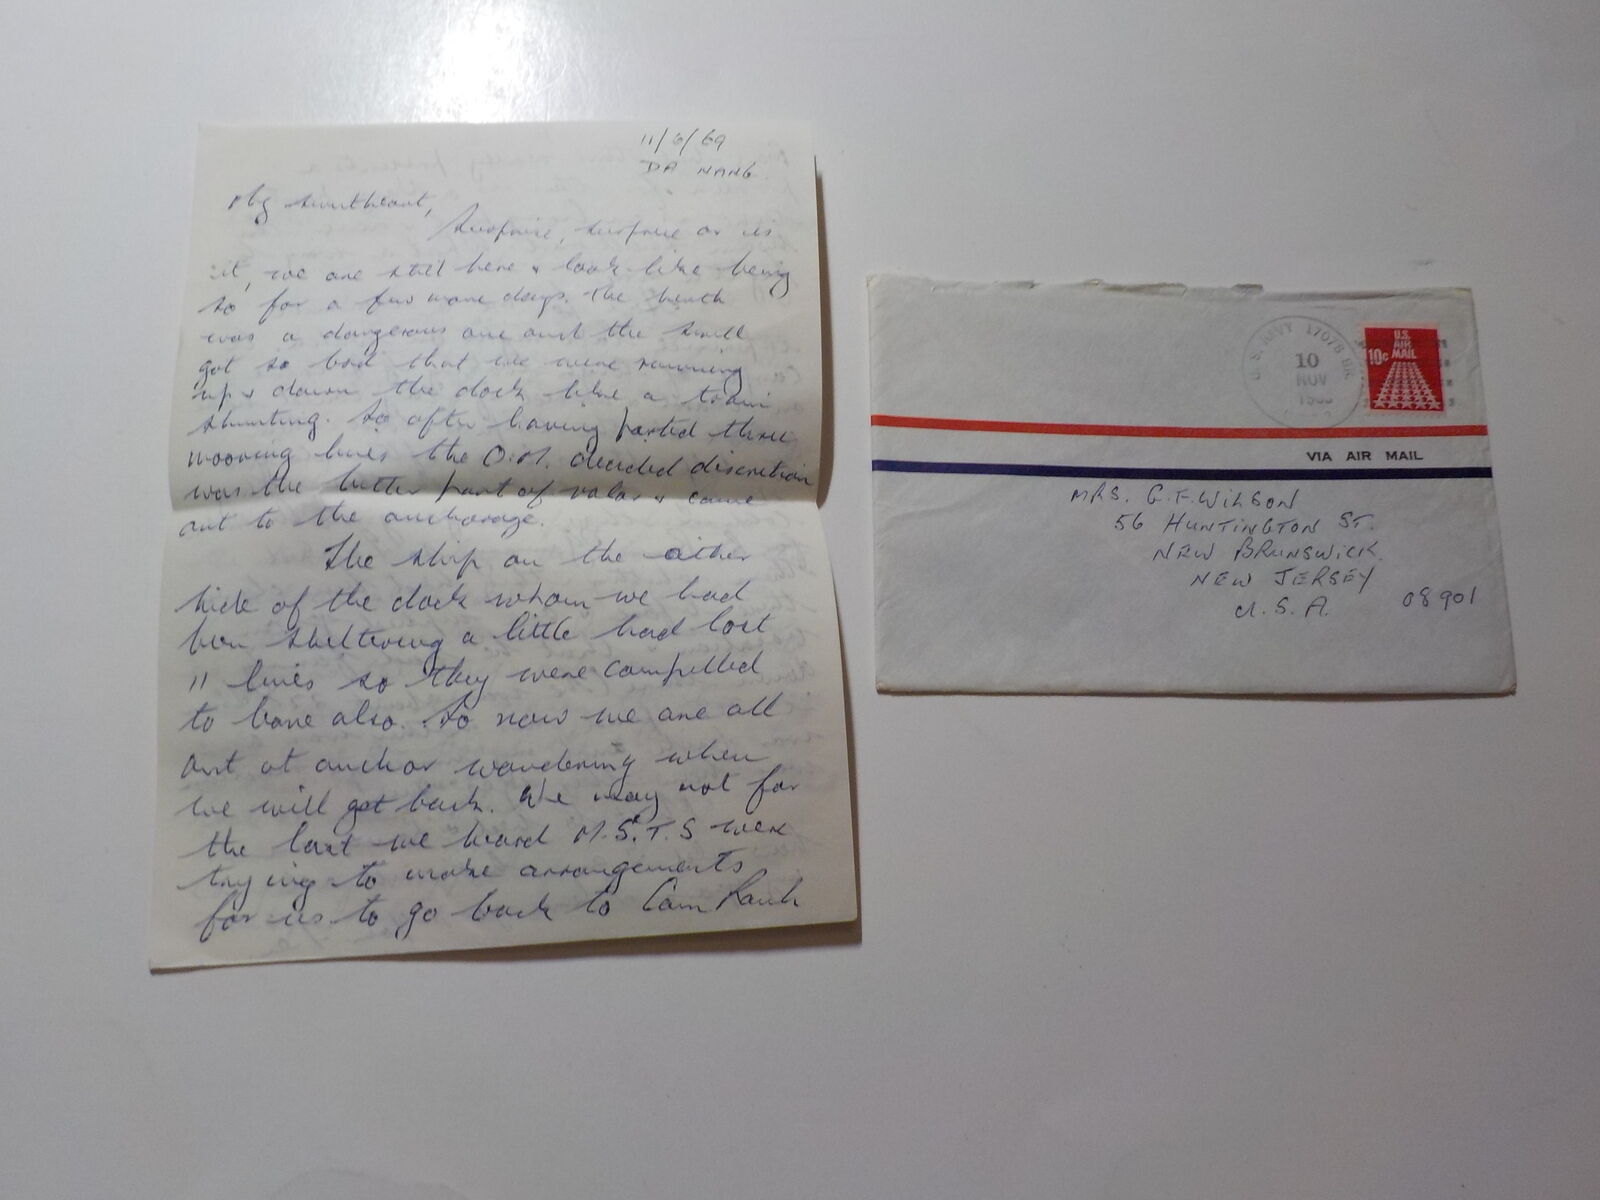 11/6/69
DA NANG.
My sweetheart,
Surprise, surprise or is
it, we are still here & look like being
so for a few more days. The berth
was a dangerous one and the swell
got so bad that we were running
up & down the dock like a train
shunting. So after having parted three
mooring lines the O.M. decided discretion
was the better part of valor & came
out to the anchorage.
The ship on the other
side of the dock whom we had
been sheltering a little had lost
11 lines so they were compelled
to leave also. So now we are all
out at anchor wondering when
we will get back. We may not for
the last we heard M.S.T.S were
trying to make arrangements
for us to go back to Cam Ranh
U.S. NAVY 17078 BR.
10
NOV
U.S.
AIR
MAIL
10c
VIA AIR MAIL
MRS. G. F. WILSON
56 HUNTINGTON ST.
NEW BRUNSWICK.
NEW JERSEY
U.S.A. 08901